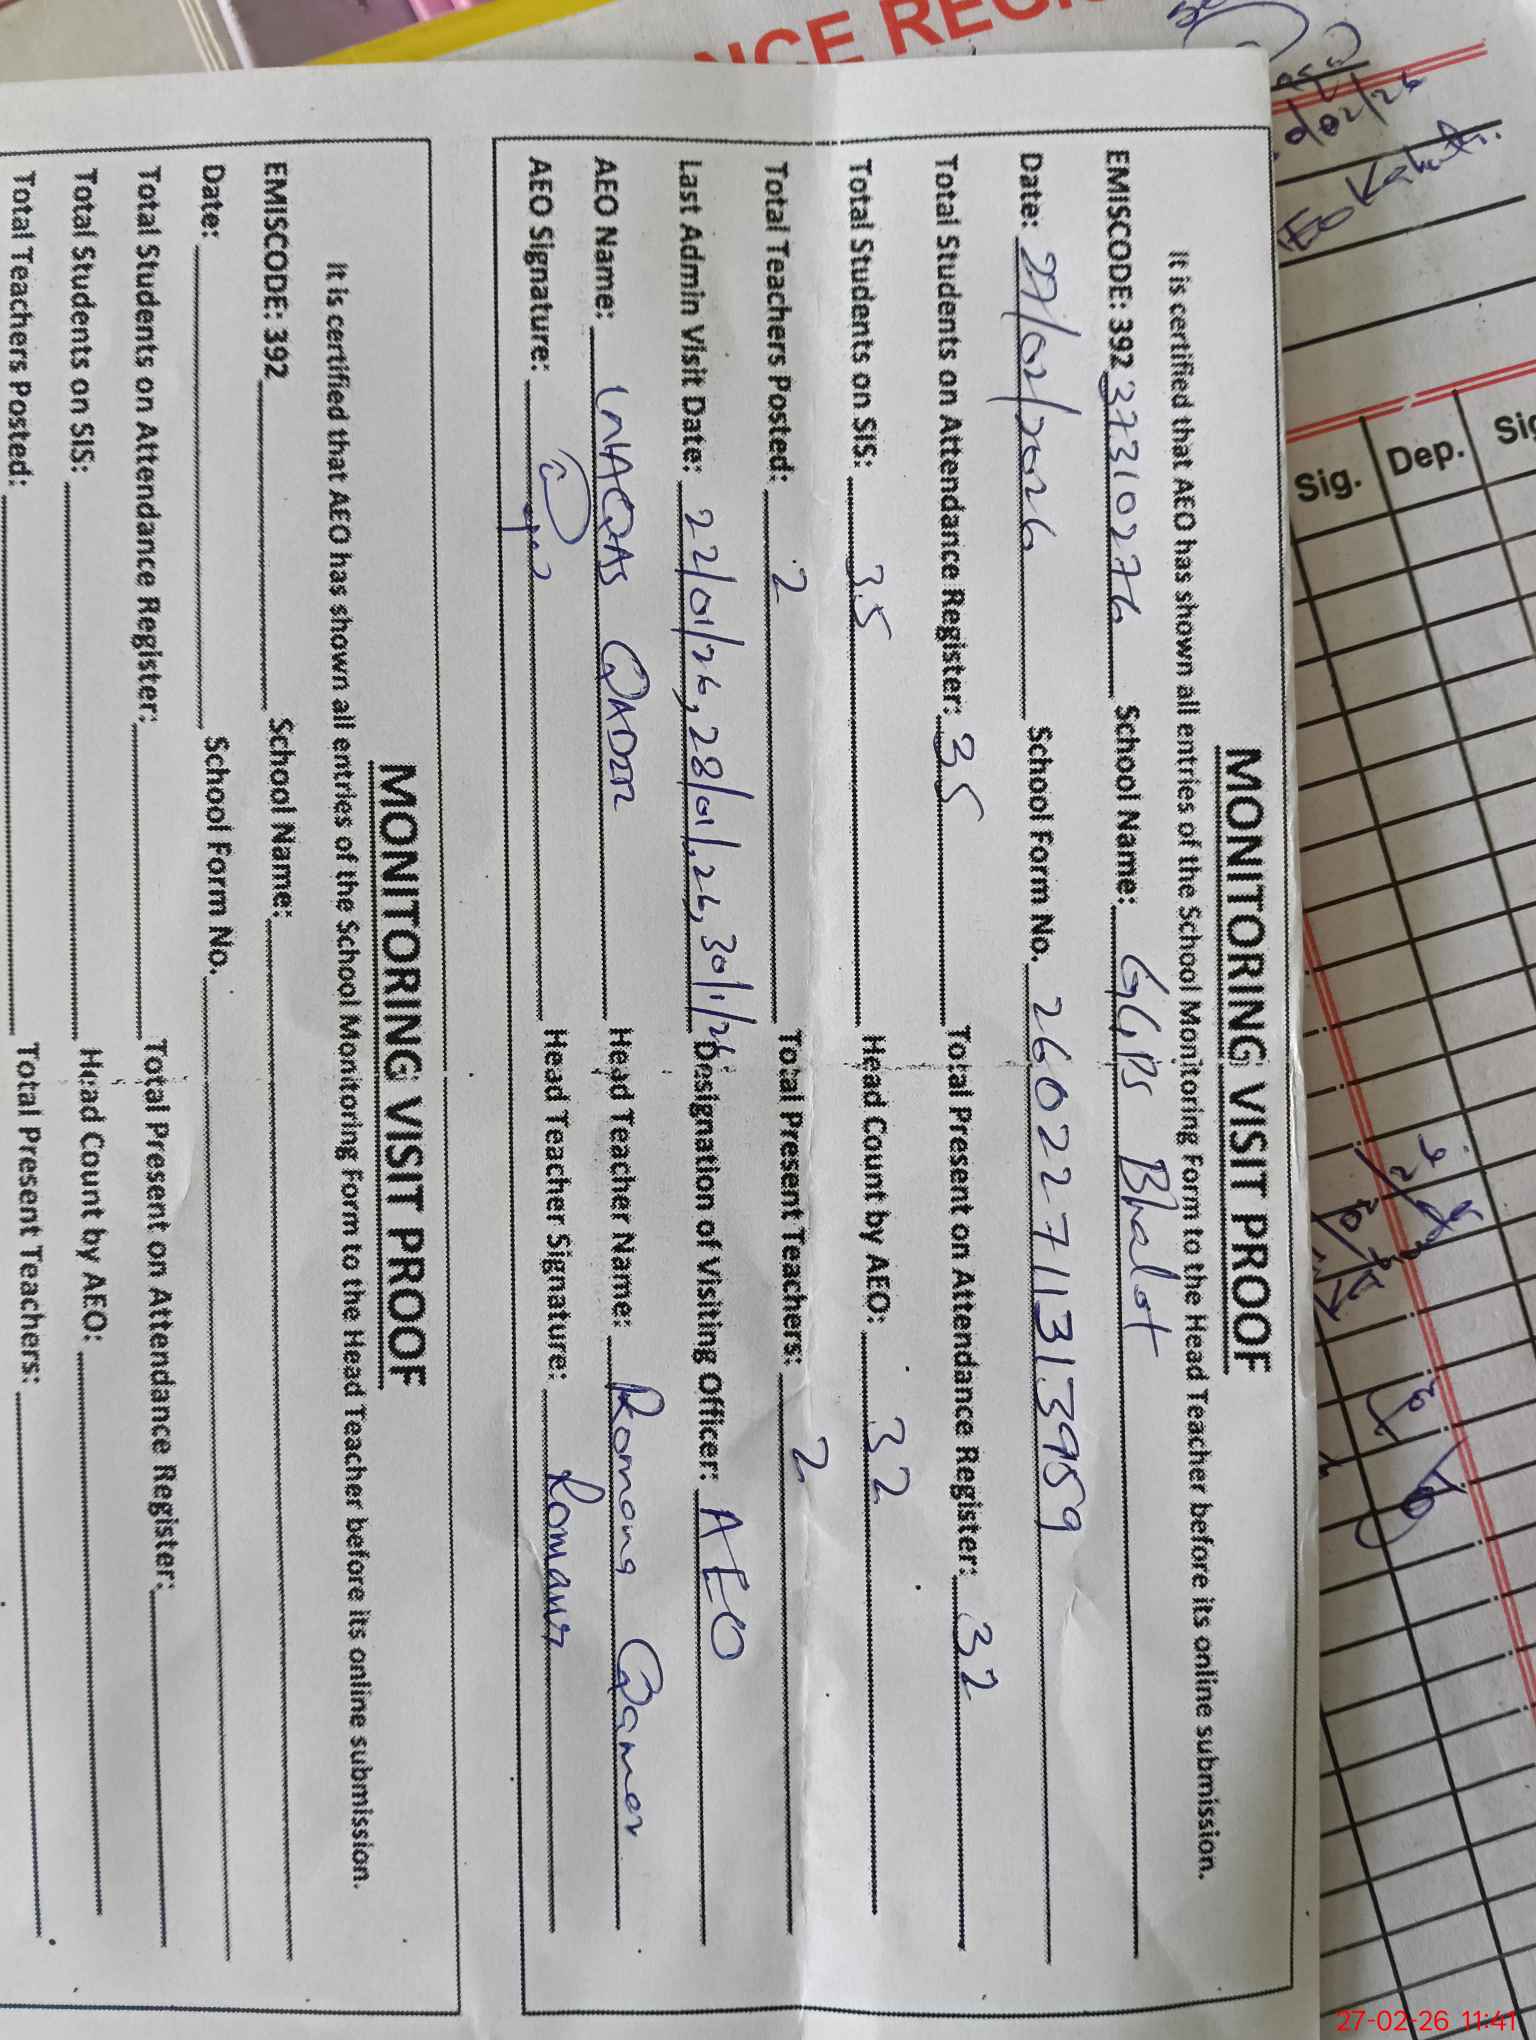 NCE REG
MONITORING VISIT PROOF
It is certified that AEO has shown all entries of the School Monitoring Form to the Head Teacher before its online submission.
EMISCODE: 392 37310276 School Name: GGPS Bhalot
Date: 27/02/2026 School Form No. 26022711313959
Total Students on Attendance Register: 35 Total Present on Attendance Register: 32
Total Students on SIS: 35 Head Count by AEO: 32
Total Teachers Posted: 2 Total Present Teachers: 2
Last Admin Visit Date: 22/01/26, 28/01/26, 30/1/26 Designation of Visiting Officer: AEO
AEO Name: WAQAS QADIR Head Teacher Name: Romana Qamar
AEO Signature: Head Teacher Signature: Romana
MONITORING VISIT PROOF
It is certified that AEO has shown all entries of the School Monitoring Form to the Head Teacher before its online submission.
EMISCODE: 392 School Name:
Date: School Form No.
Total Students on Attendance Register: Total Present on Attendance Register:
Total Students on SIS: Head Count by AEO:
Total Teachers Posted: Total Present Teachers:
Sig. Dep. Sig
27-02-26 11:41